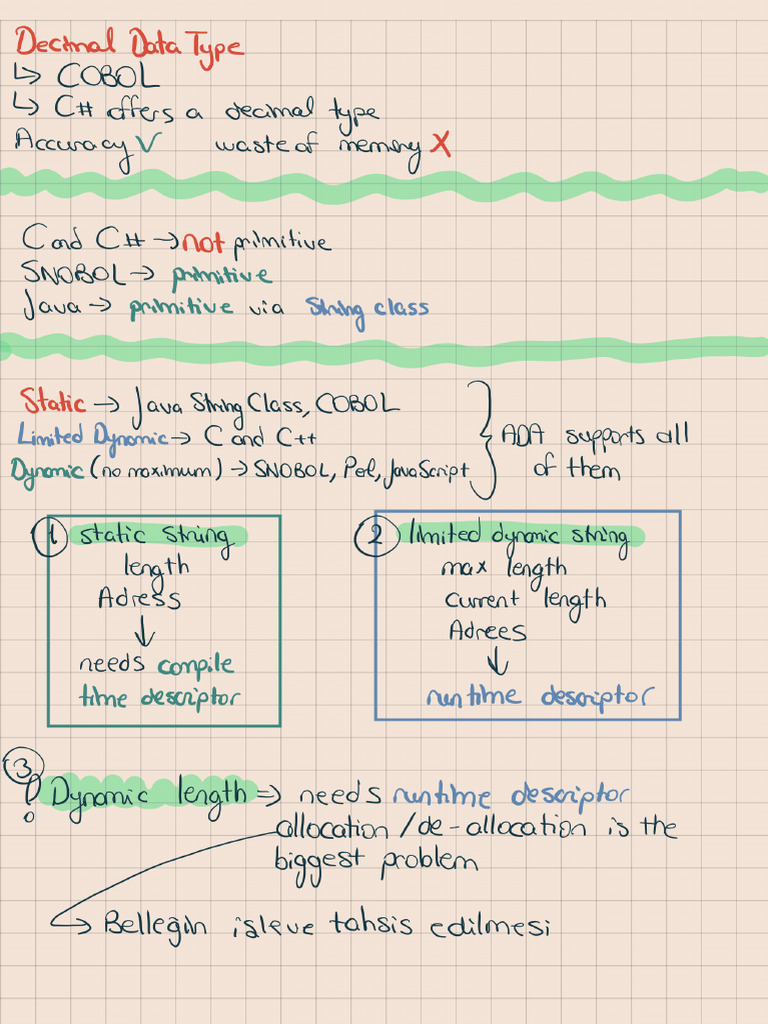 Decimal Data Type
↳ COBOL
↳ C# offers a decimal type
Accuracy ✓ waste of memory X
C and C# → not primitive
SNOBOL → primitive
Java → primitive via String class
Static → Java String Class, COBOL
Limited Dynamic → C and C++
Dynamic (no maximum) → SNOBOL, Perl, JavaScript
ADA supports all
of them
1 static string
length
Adress
↓
needs compile
time descriptor
2 limited dynamic string
max length
current length
Adrees
↓
runtime descriptor
3
! Dynamic length ⇒ needs runtime descriptor
allocation / de-allocation is the
biggest problem
↳ Belleğin işleve tahsis edilmesi